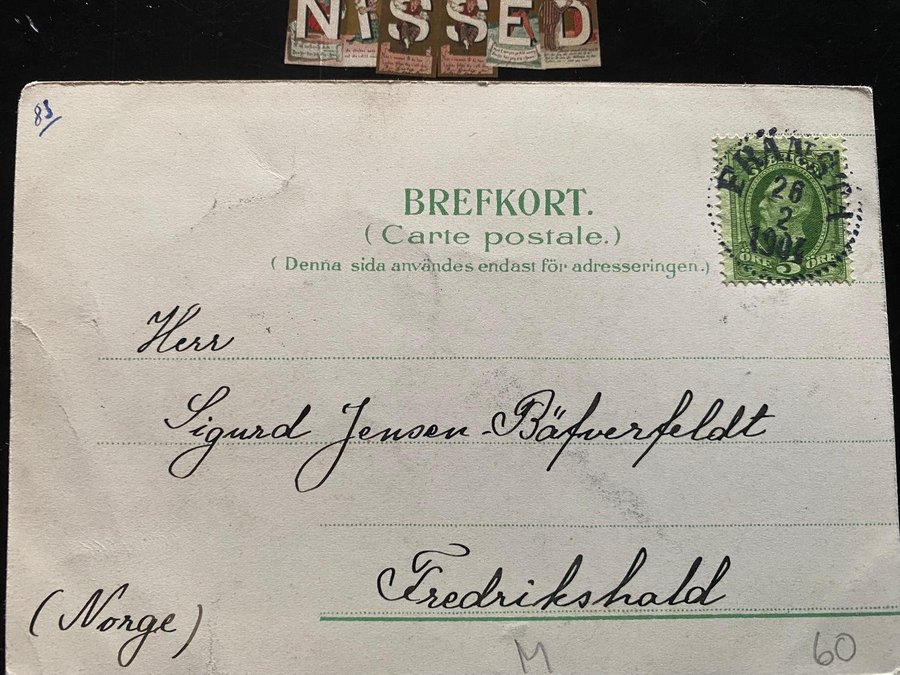 NISSED
85
BREFKORT.
(Carte postale.)
(Denna sida användes endast för adresseringen.)
FRÅNSTA
26
2
1904
ÖRE 5 ÖRE
Herr
Sigurd Jensen-Bäfverfeldt
Fredrikshald
(Norge)
M
60